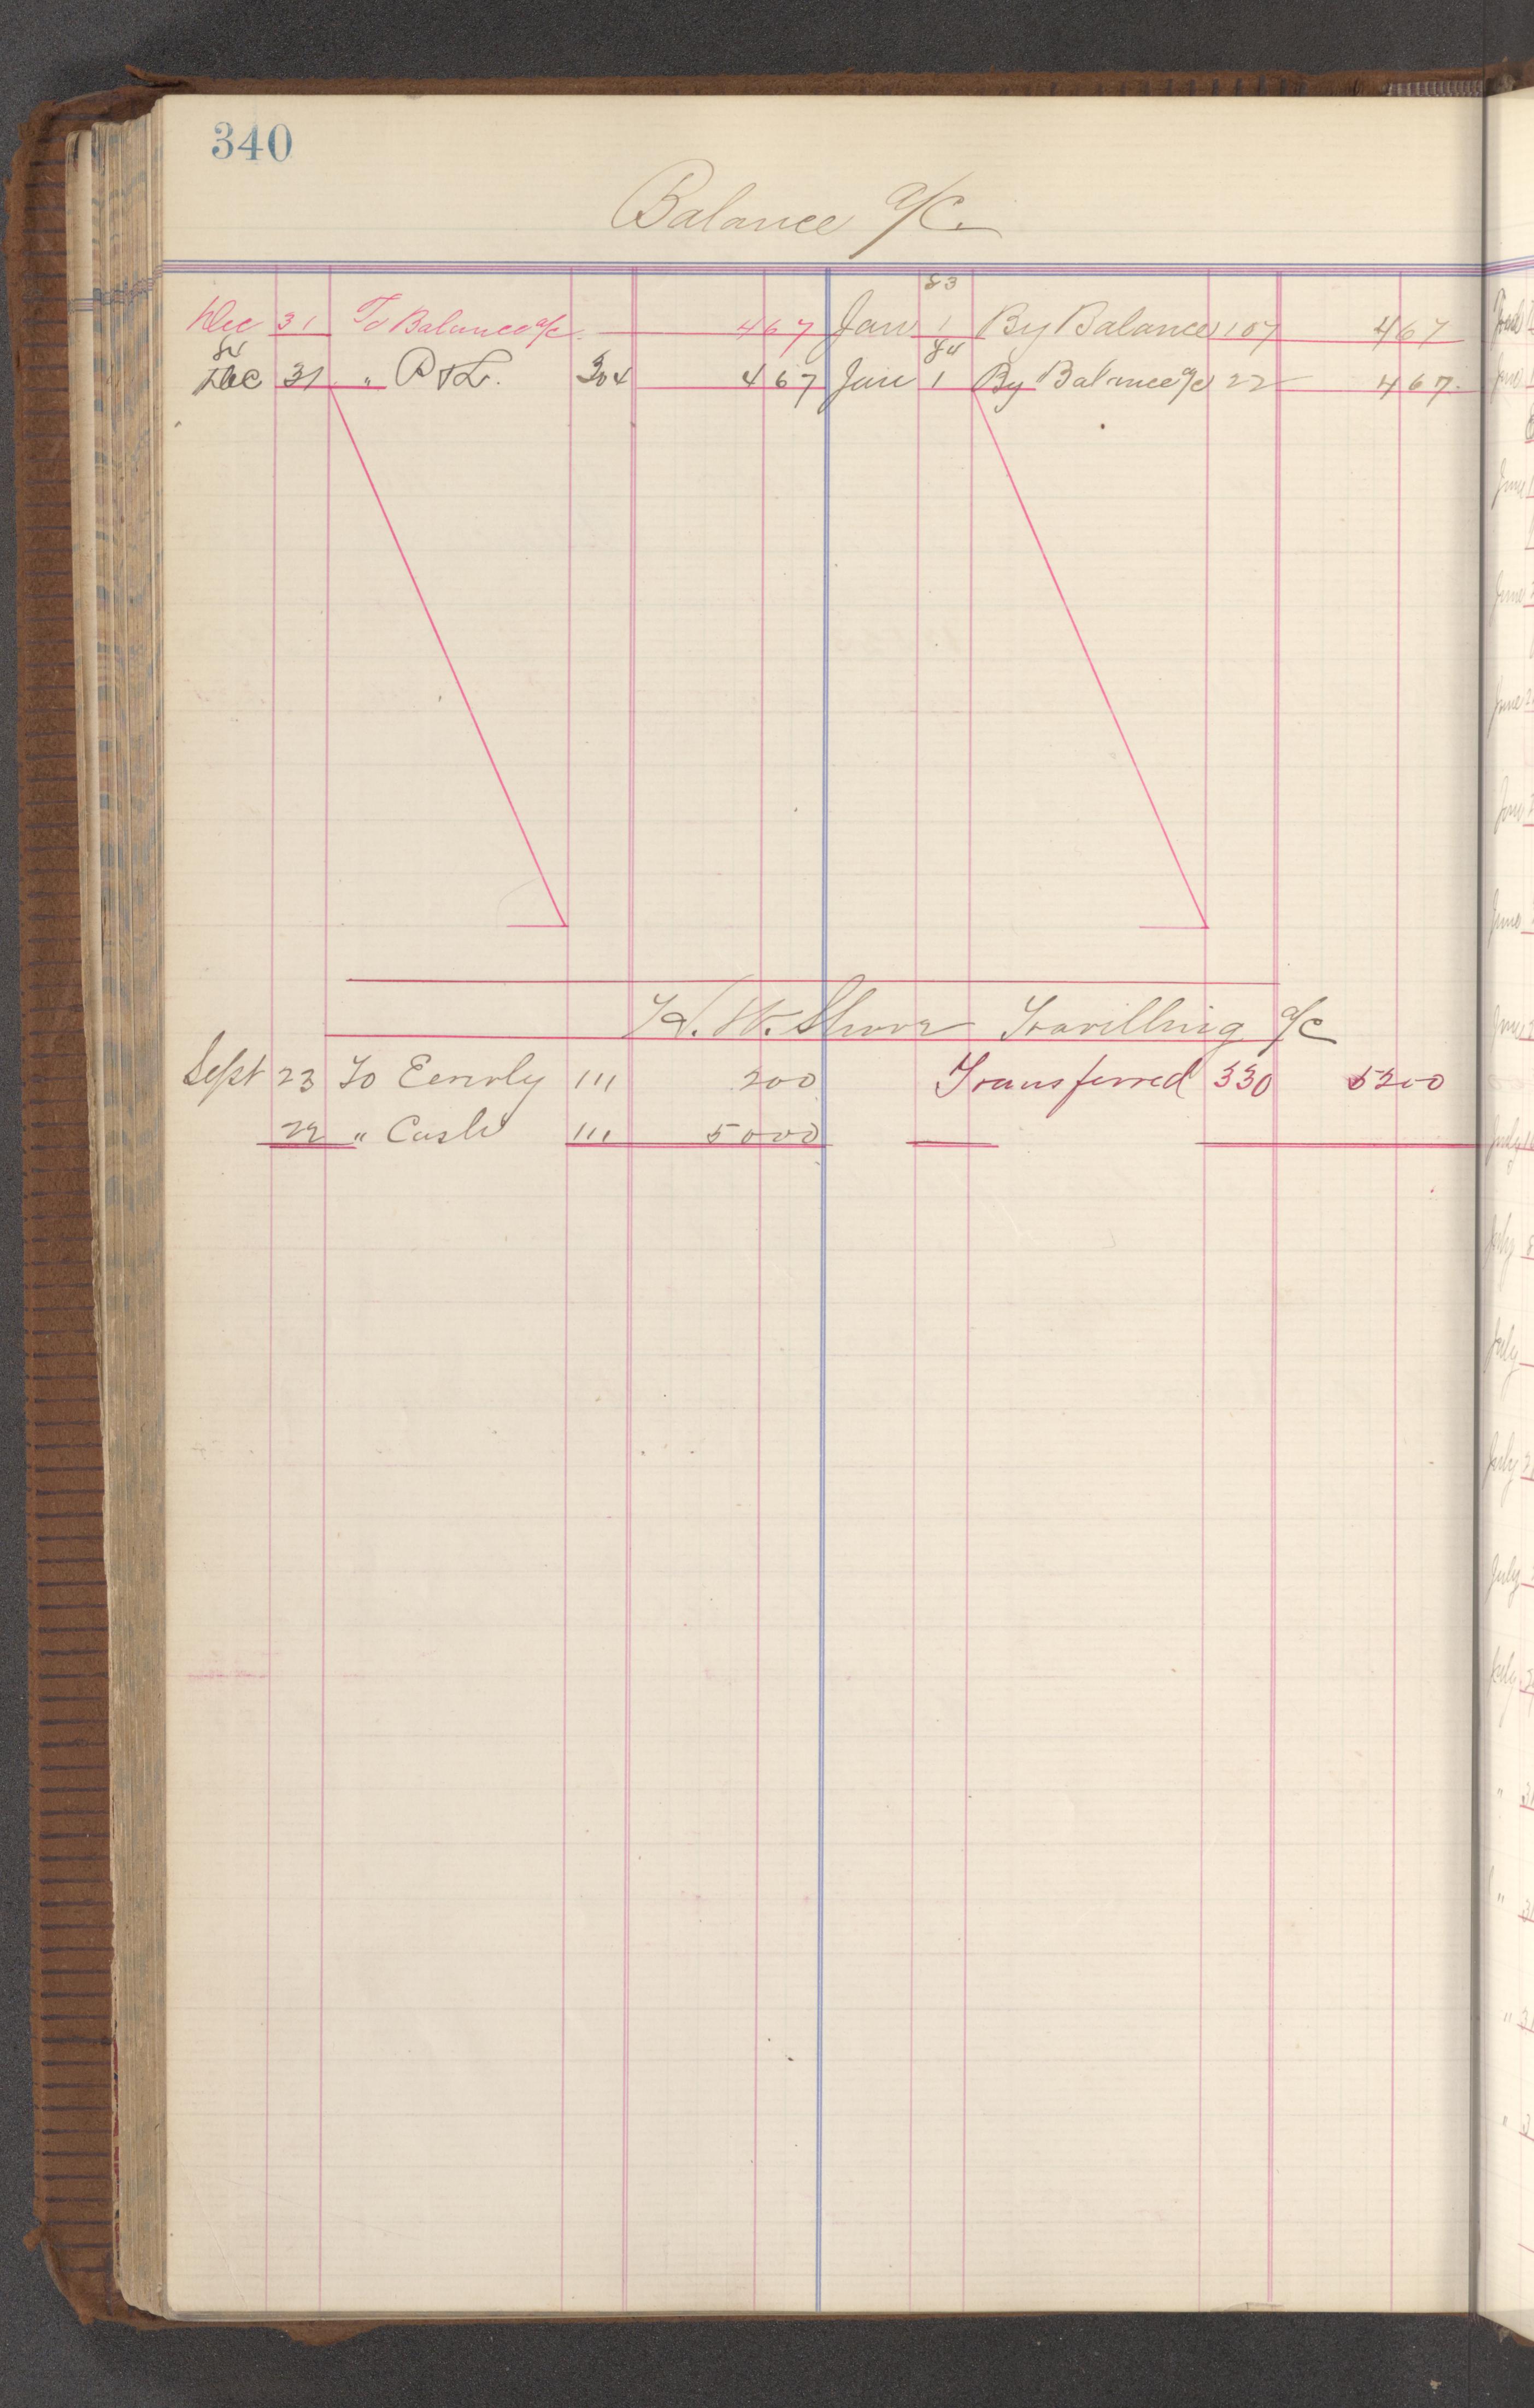 340
Balance a/c.
83
Dec 31 To Balance a/c. 467 Jan 1 By Balance 107 467
84 84
Dec 31 " P & L. 304 467 Jan 1 By Balance a/c 22 467.
H. W. Travilling a/c
Sept 23 To 111 200 Transferred 330 5200
" Cash 111 5000